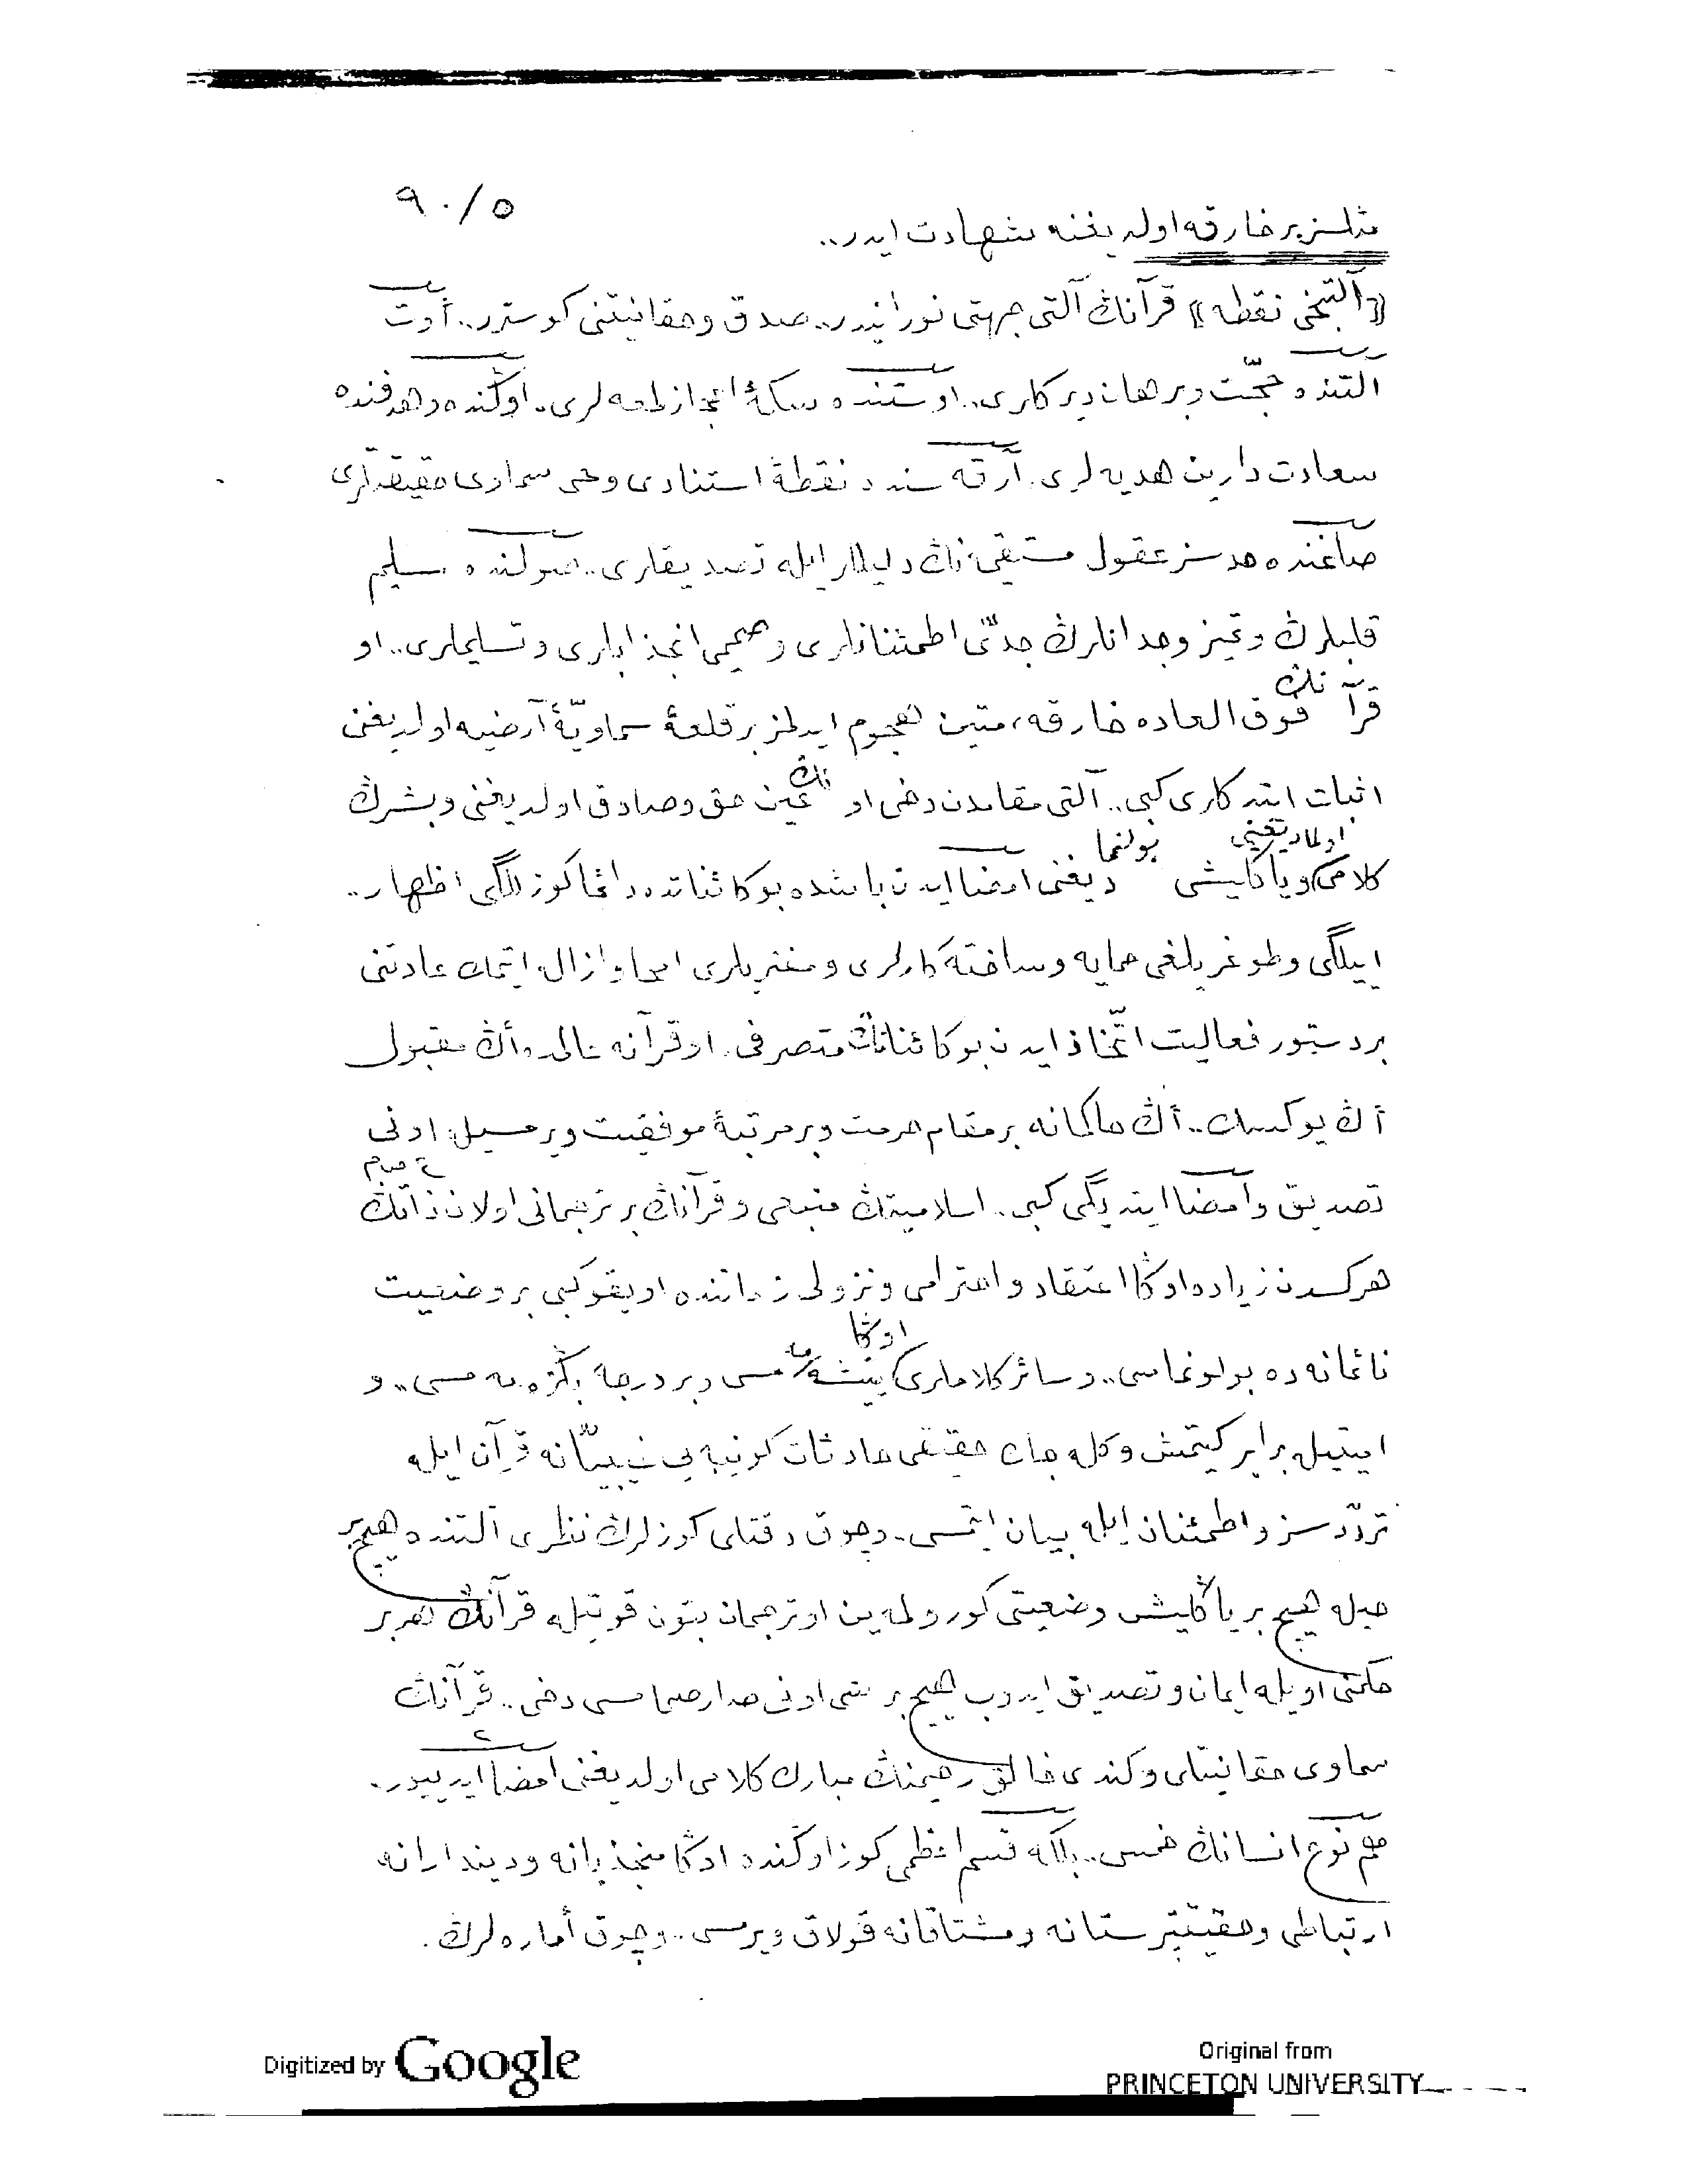 ٩٠/٥
مثلسز بر خارقه اولديغنه شهادت ايدر..
«آلتنجى نقطه» قرآنڭ آلتى جهتى نورانيدر.. صدق و حقانيتنى كوسترر.. أوت
آلتنده حجّت و برهان ديركلرى.. اوستنده سكۀ اعجاز لمعه لرى.. اوڭنده و هدفنده
سعادت دارين هديه لرى. آرقه سنده نقطۀ استنادى وحى سماوى حقيقتلرى
صاغنده حدسز عقول مستقيمه نڭ دليللر ايله تصديقلرى.. صولنده سليم
قلبلرڭ و تميز وجدانلرڭ جدّى اطمئنانلرى و صميمى انجذابلرى و تسليملرى.. او
قرآنڭ فوق العاده خارقه، متين هجوم ايدلمز بر قلعۀ سماويّۀ أرضيه اولديغنى
اثبات ايتدكلرى كبى.. آلتى مقامدن دخى اونڭ عين حق و صادق اولديغنى و بشرڭ
كلامى اولماديغنى و ياڭليشى بولنماديغنى امضا ايدن باشده بو كائناتده دائما كوزللگى اظهار..
اييلگى و طوغريلغى حمايه و ساخته كارلرى و مفتريلرى امحا و ازاله ايتمك عادتنى
بر دستور فعاليت اتّخاذ ايدن بو كائناتڭ متصرفى. او قرآنه عالمده أڭ مقبول
أڭ يوكسك.. أڭ حاكمانه بر مقام حرمت و بر مرتبۀ موفقيت ويرمسيله اونى
تصديق و امضا ايتديگى كبى.. اسلاميتڭ منبعى و قرآنڭ بر ترجمانى اولان ذاتڭ ع ص م
هركسدن زياده اوڭا اعتقاد و احترامى و نزولى زماننده اويقو كبى بر وضعيت
نائمانه ده بولونماسى.. و سائر كلاملرى اوڭا يتيشه مه مسى و بر درجه بڭزه مه مسى.. و
اميتيله برابر كيتمش و كله جك حقيقى حادثات كونيه يى غيبيّانه قرآن ايله
تردّدسز و اطمئنان ايله بيان ايتمسى.. و چوق دقتلى كوزلرڭ نظرى آلتنده هيچ بر
حيله هيچ بر ياڭليش وضعيتى كورولمه ين او ترجمان بتون قوتيله قرآنڭ هر بر
حكمنى اويله ايمان و تصديق ايدوب هيچ بر شى اونى صارصماسى دخى.. قرآنڭ
سماوى حقانيتلى و كندى خالق رحيمنڭ مبارك كلامى اولديغنى امضا ايدييور.
هم نوع انسانڭ خمسى.. بلكه قسم اعظمى كوز اوڭنده اوڭا منجذبانه و ديندارانه
ارتباطى و حقيقتپرستانه و مشتاقانه قولاق ويرمسى.. و چوق أماره لرڭ.
Digitized by Google
Original from
PRINCETON UNIVERSITY